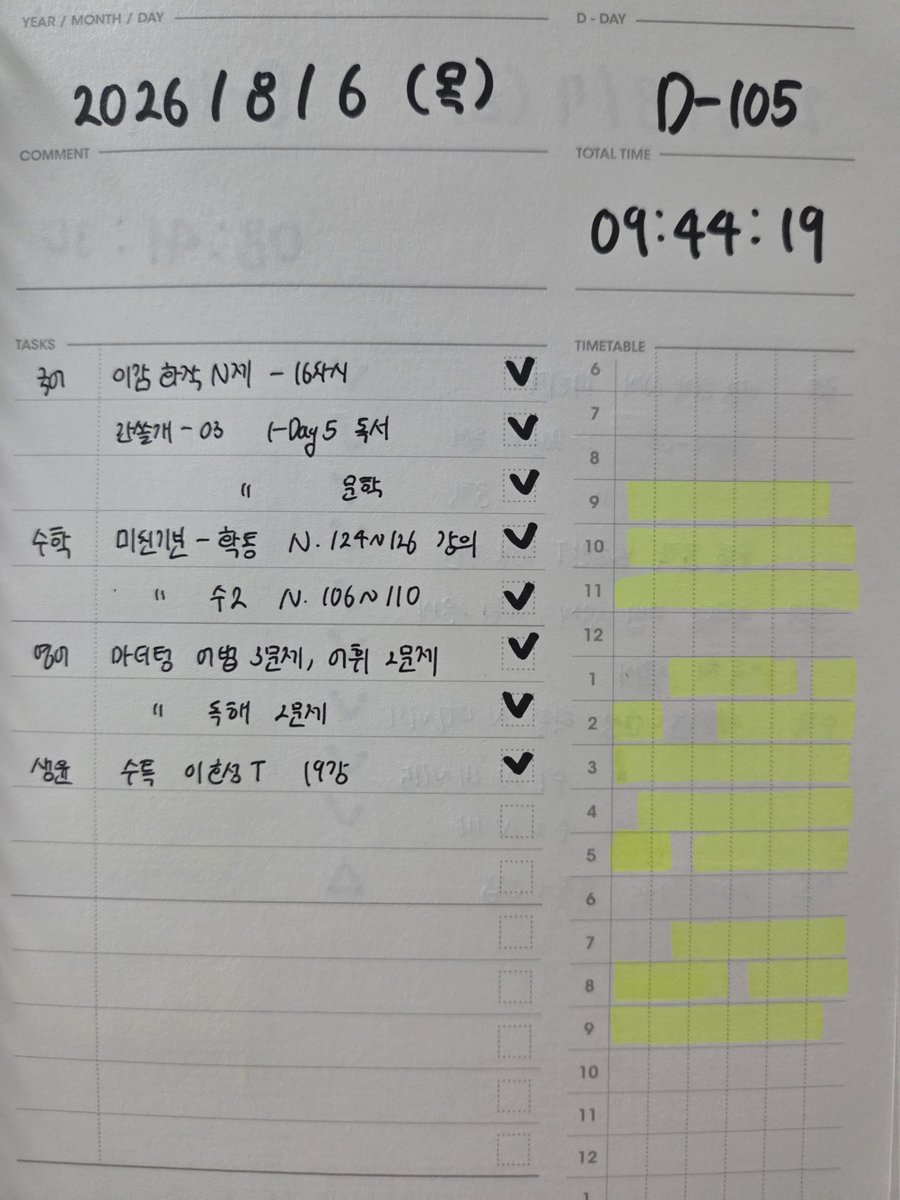 YEAR / MONTH / DAY
2026 / 8 / 6 (목)
D - DAY
D-105
COMMENT
TOTAL TIME
09:44:19
TASKS
국어 이감 화작 N제 - 16회시
간쓸개 - 03 1-Day 5 독서
" 문학
수학 미친기분 - 확통 N. 124~126 강의
" 수2 N. 106~110
영어 마더텅 어법 3문제, 어휘 2문제
" 독해 2문제
생윤 수특 이현성T 19강
TIMETABLE
6
7
8
9
10
11
12
1
2
3
4
5
6
7
8
9
10
11
12
1